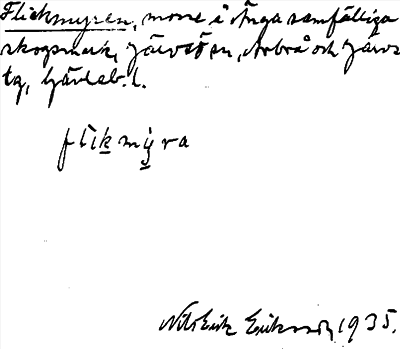 Flickmyren, mosse i Änga samfälliga
skogsmark, Järvsö sn, Arbrå och Järvsö
tg, Gävleb. l.
flikmyra
Nils Erik Eriksson, 1935.